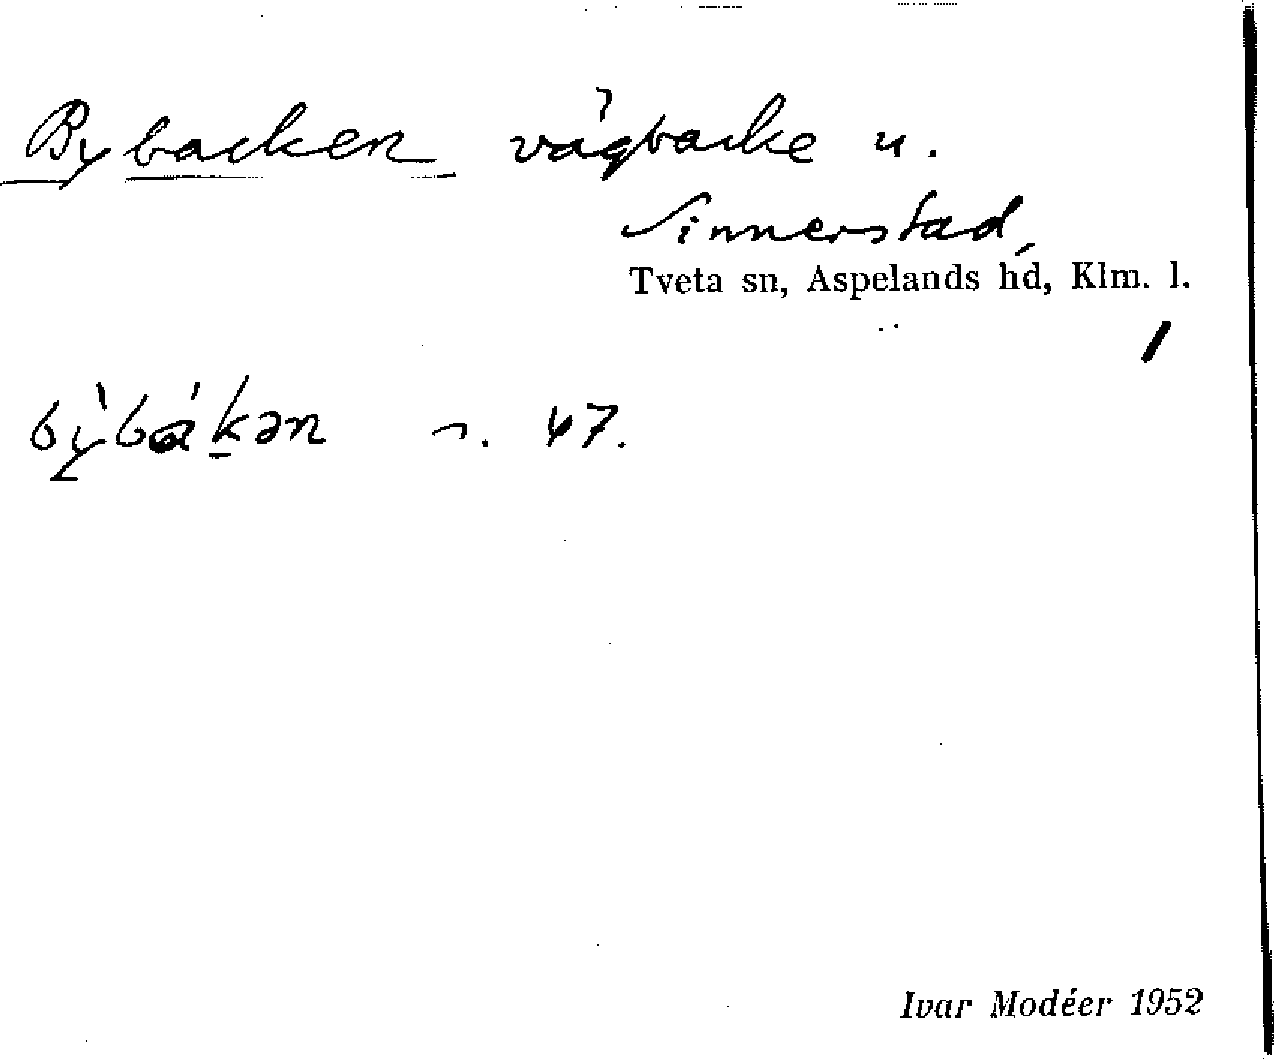 Bybacken vägbacke u.
Sinnerstad,
Tveta sn, Aspelands hd, Klm. l.
bỳbákən n. 47.
Ivar Modéer 1952